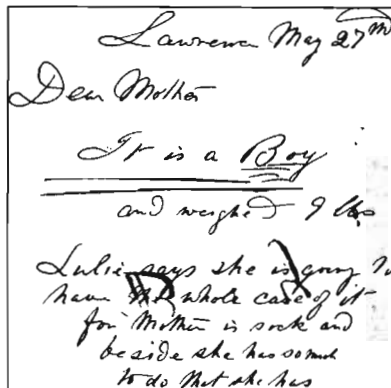 Lawrence May 27th
Dear Mother
It is a Boy
and weighed 9 lbs
Lulie says she is going to
have the whole care of it
for Mother is sick and
beside she has so much
to do that she has